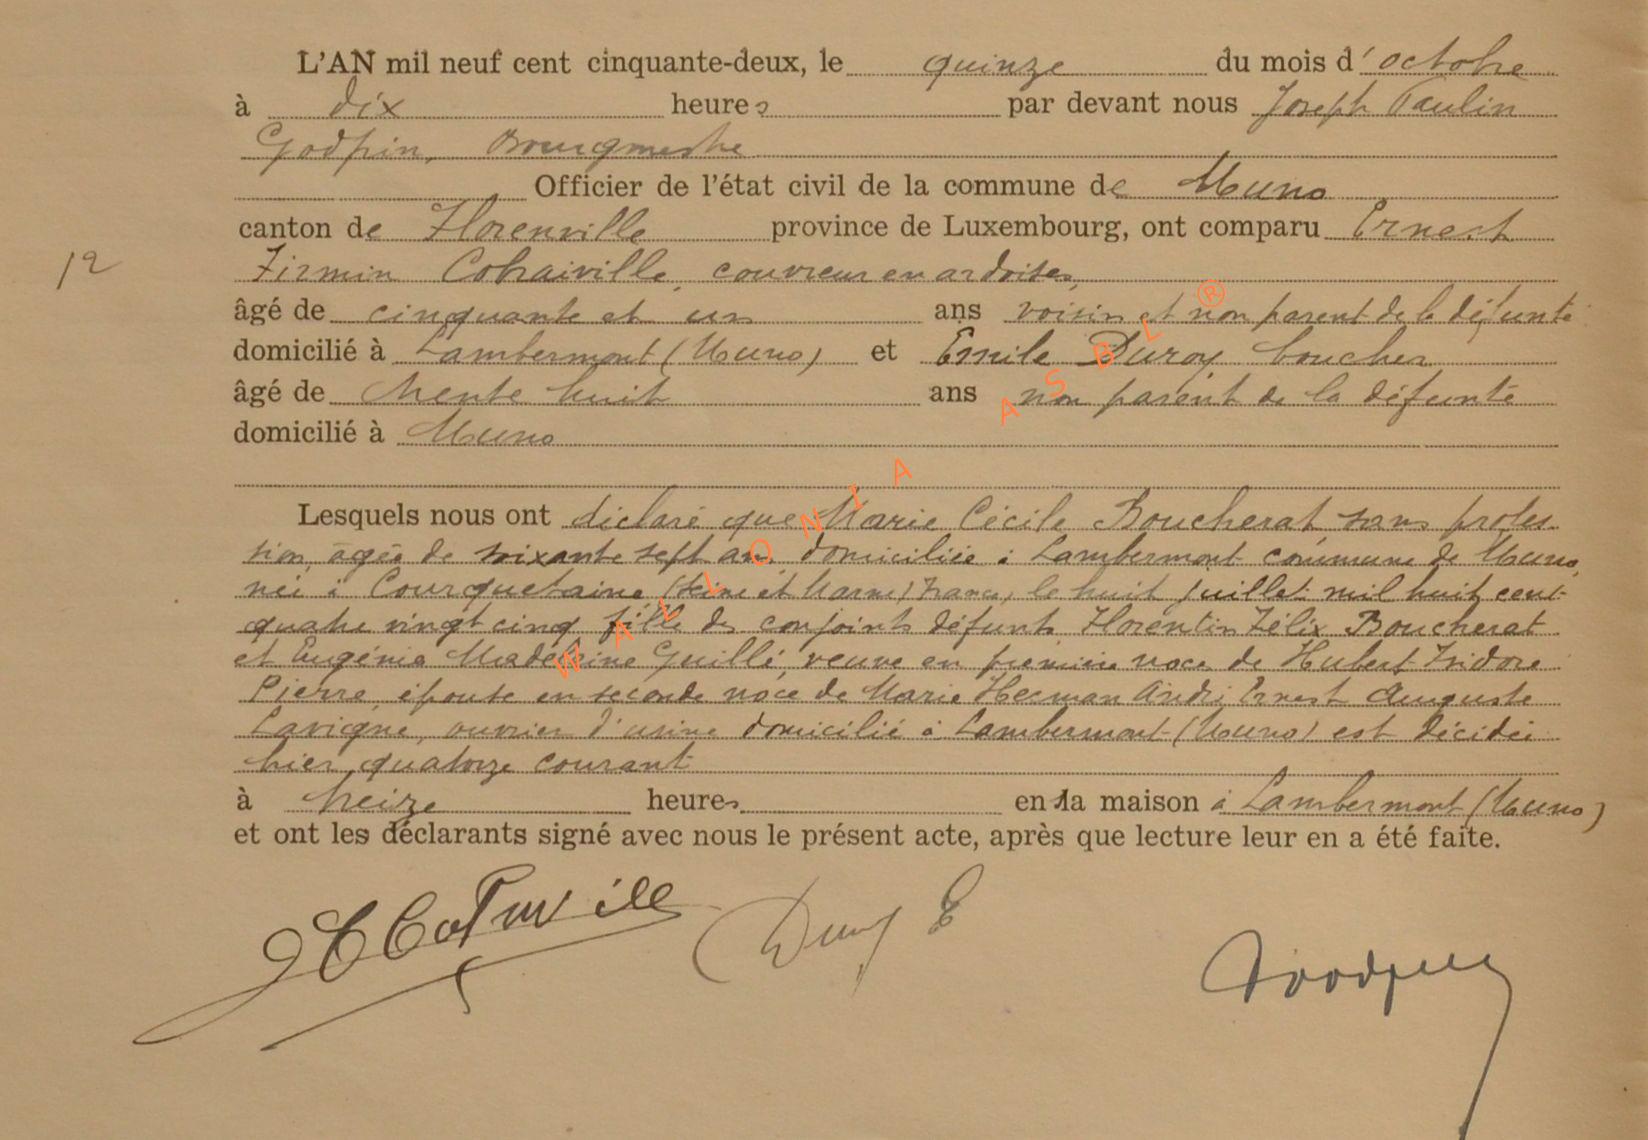 L'AN mil neuf cent cinquante-deux, le quinze du mois d'octobre
à dix heures par devant nous Joseph Paulin
Godfrin, Bourgmestre
Officier de l'état civil de la commune de Muno
canton de Florenville province de Luxembourg, ont comparu Ernest
12
Firmin Cotraiville, couvreur en ardoises,
âgé de cinquante et un ans voisin et non parent de la défunte
domicilié à Lambermont (Muno) et Emile Duroy, boucher
âgé de trente huit ans non parent de la défunte
domicilié à Muno
Lesquels nous ont déclaré que Marie Cécile Boucherat sans profes-
sion, âgée de soixante sept ans, domiciliée à Lambermont commune de Muno,
née à Courquetaine (Seine et Marne) France, le huit juillet mil huit cent
quatre vingt cinq fille des conjoints défunts Florentin Félix Boucherat
et Eugénie Madeleine Guillé, veuve en première noce de Hubert Isidore
Pierre, épouse en seconde noce de Marie Herman André Ernest Auguste
Lavigne, ouvrier d'usine domicilié à Lambermont (Muno) est décédée
hier, quatorze courant
à treize heures en sa maison à Lambermont (Muno)
et ont les déclarants signé avec nous le présent acte, après que lecture leur en a été faite.
Duroy E
WALLONIA ASBL ®